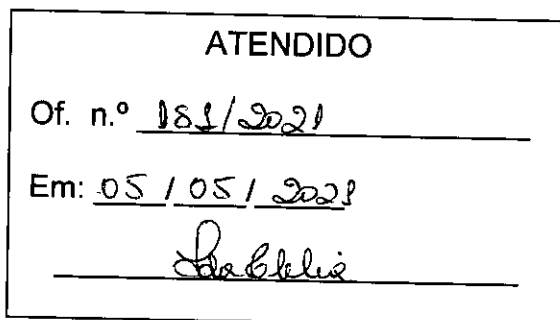 ATENDIDO
Of. n.º 181/2021
Em: 05 / 05 / 2021